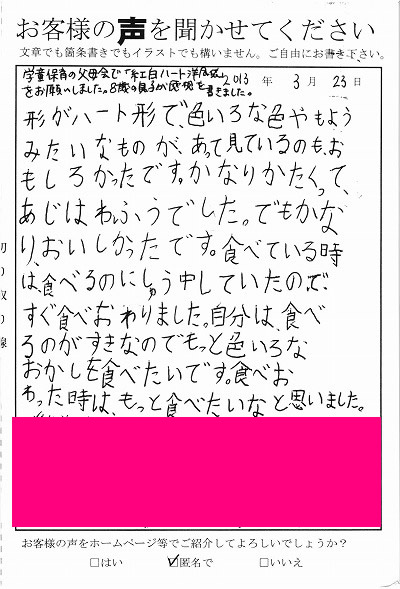 お客様の声を聞かせてください
文章でも箇条書きでもイラストでも構いません。ご自由にお書き下さい。
学童保育の父母会で「紅白ハート
をお願いしました。8歳の息子が感想を書きました。
2013年 3月 23日
形がハート形で、色いろな色やもよう
みたいなものが、あって見ているのも、お
もしろかったです。かなりかたくって、
あじはわふうでした。でもかな
り、おいしかったです。食べている時
は、食べるのにしゅう中していたので、
すぐ食べおわりました。自分は、食べ
るのがすきなのでもっと色いろな
おかしを食べたいです。食べお
わった時は、もっと食べたいなと思いました。
お客様の声をホームページ等でご紹介してよろしいでしょうか?
□はい ☑匿名で □いいえ
切り取り線